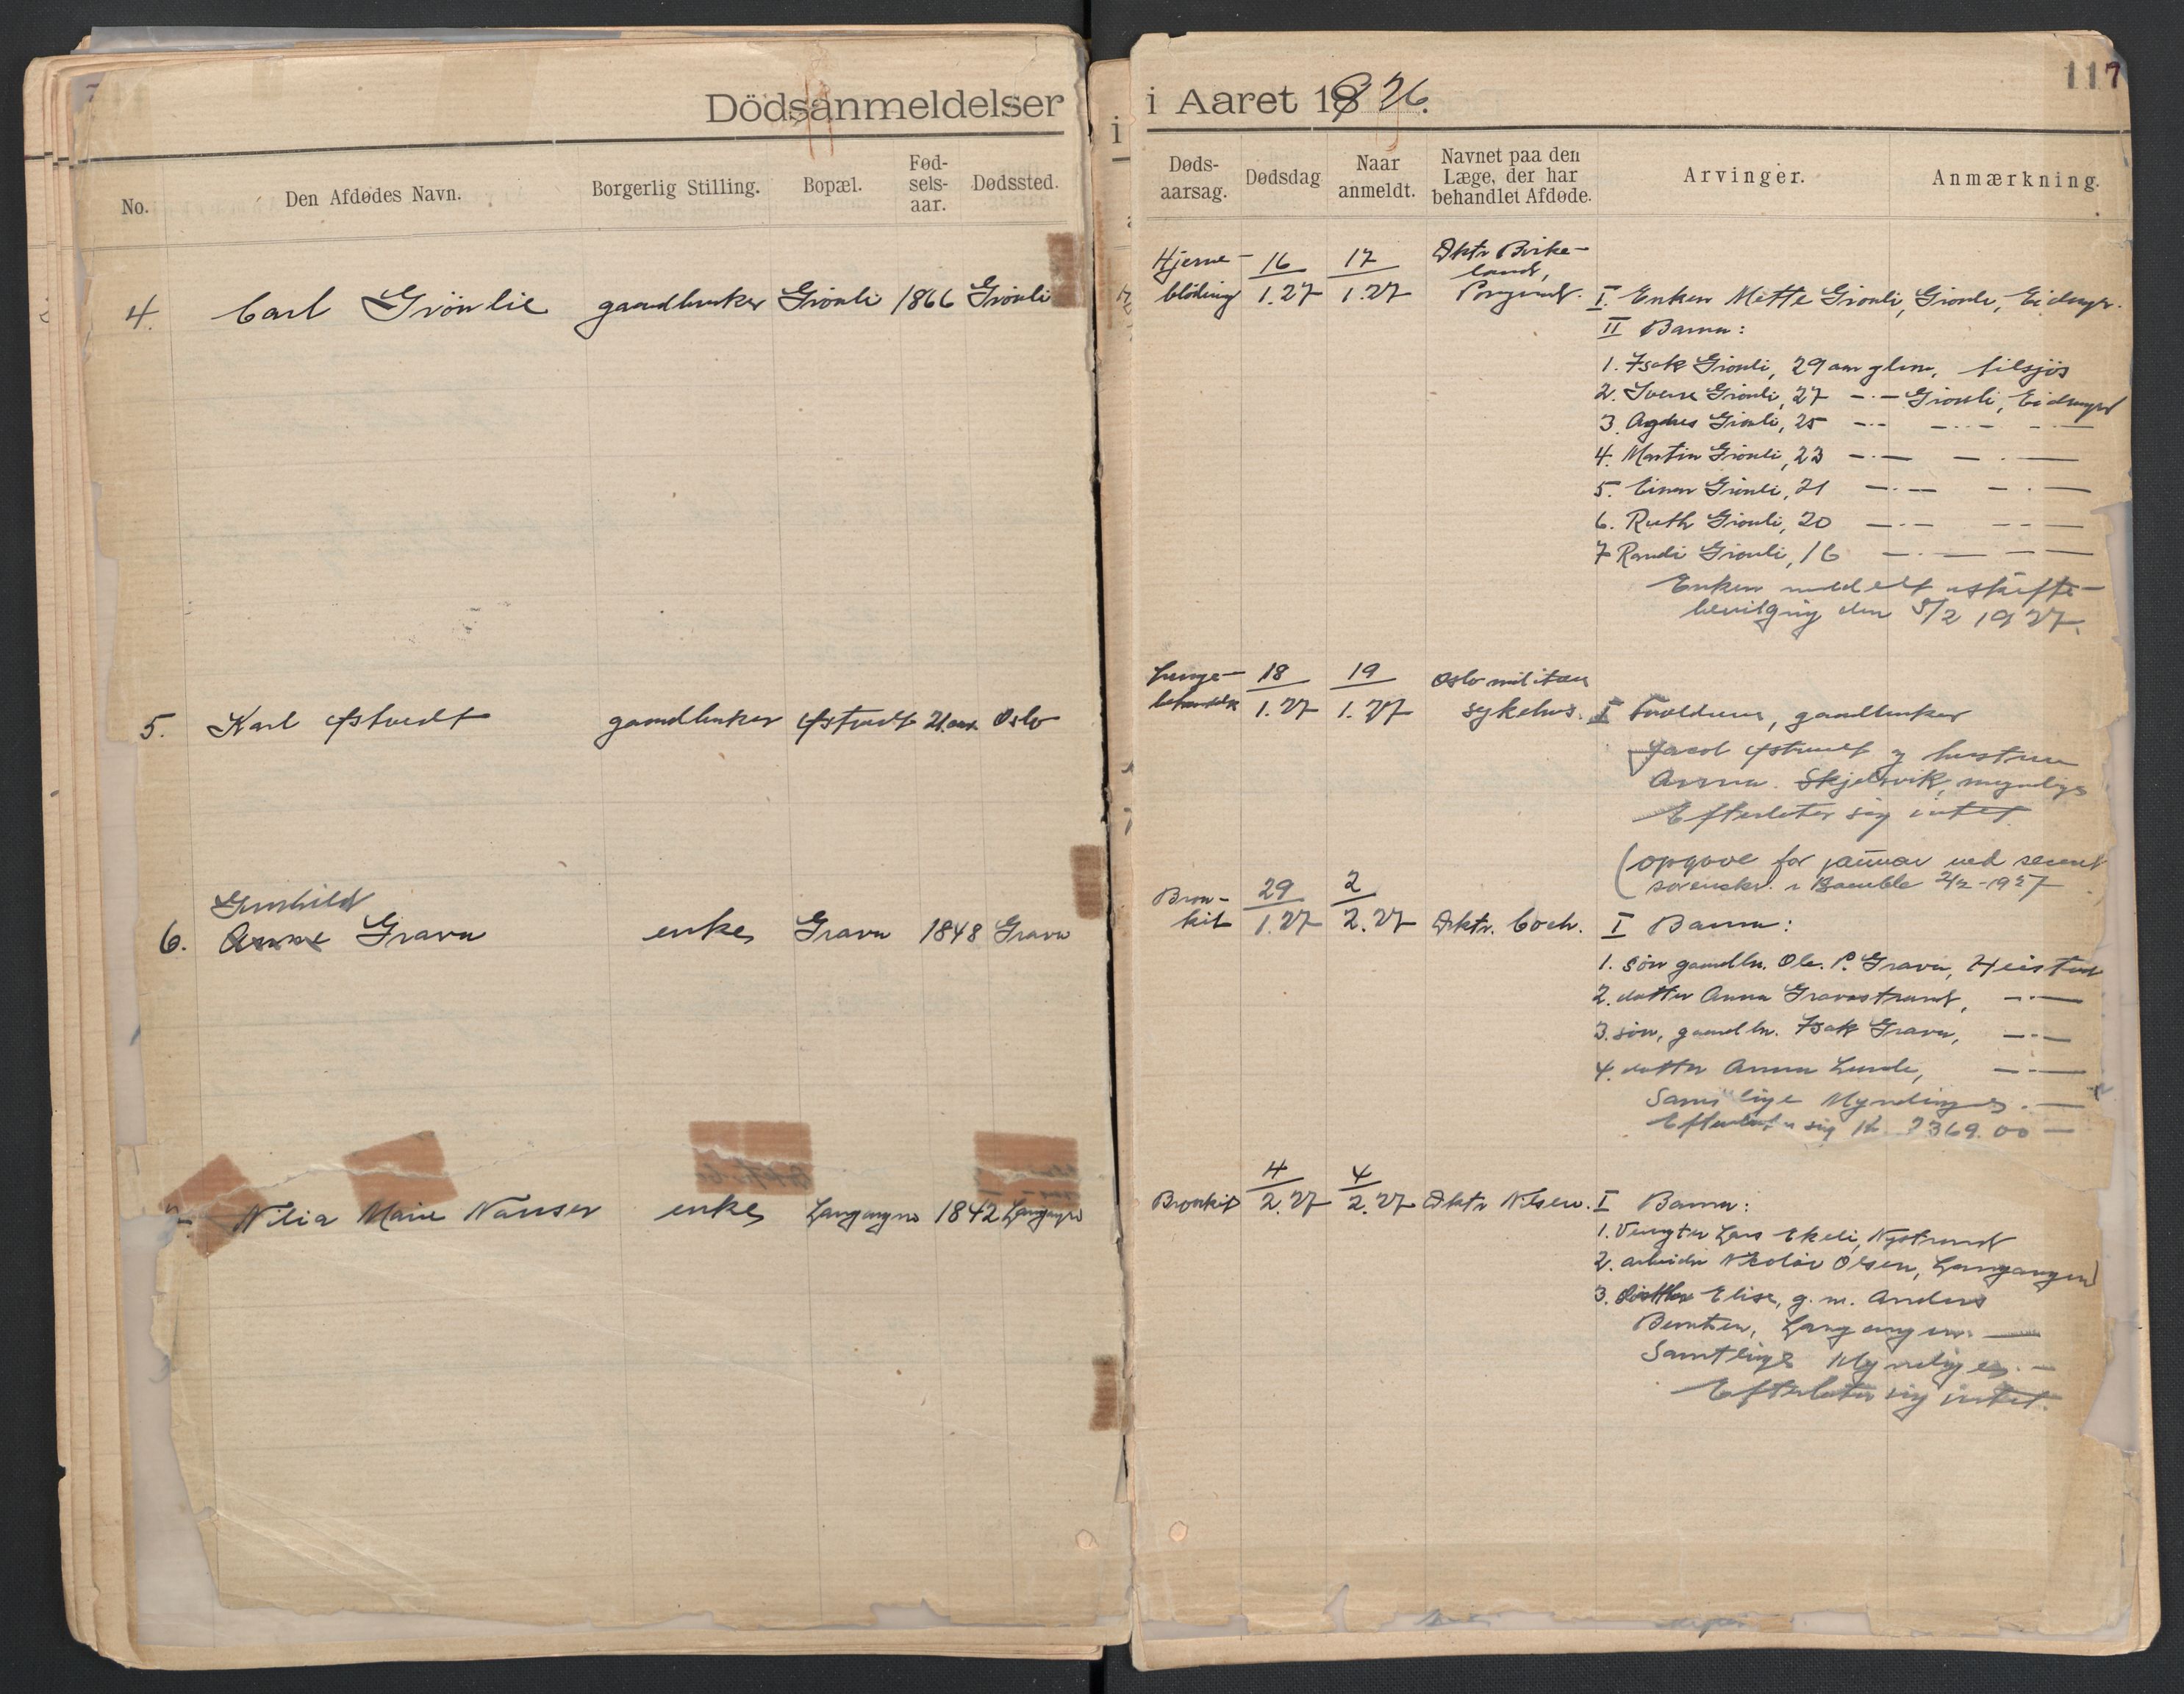 117
Dödsanmeldelser i Aaret 1926.
No. Den Afdødes Navn. Borgerlig Stilling. Bopæl. Fød-sels-aar. Dødssted. Døds-aarsag. Dødsdag Naar anmeldt. Navnet paa den Læge, der har behandlet Afdøde. Arvinger. Anmærkning.
4. Carl Grönlie gaardbruker Grönli 1866 Grönli Hjerne-blödning 16/1.27 17/1.27 Dktr Birke-land, Porsgrund.
I. Enken Mette Grönli, Grönli, Eidanger.
II Barna:
1. Isak Grönli, 29 aar glm, tilsjös
2. Sverre Grönli, 27 -·- Grönli, Eidanger
3. Agnes Grönli, 25 -·- -·-
4. Martin Grönli, 23 -·- -·-
5. Einar Grönli, 21 -·- -·-
6. Ruth Grönli, 20 -·- -·-
7 Randi Grönli, 16 -·- -·-
Enken meddelt uskifte-
bevilgning den 5/2 1927.
5. Karl Østvedt gaardbruker Østvedt 21 aar Oslo Lunge- 18/1.27 19/1.27 Oslo militær sykehus.
I Foreldrene, gaardbruker
Jacob Østvedt og hustru
Anna Skjelsvik, myndige
Efterlater sig intet
(opgave for januar med sendt
sorenskr. i Bamble 2/2-1927
6. Gunhild
Anne Grava enke Grava 1848 Grava Bron-kit 29/1.27 2/2.27 Dktr. Coch.
I Barna:
1. sön gaardbr. Ole P. Grava, Heistad
2. datter Anna Gravastrand, -·-
3. sön, gaardbr. Isak Grava, -·-
4. datter Anna Lunde, -·-
Samtlige Myndige. -
Efterlater sig kr 2369.00 -
7. Nilia Marie Nansen enke Langangen 1842 Langangen Bronkit 4/2.27 4/2.27 Dktr Nilsen.
I Barna:
1. Vengter Lars Ekeli, Nystrand
2. arbeider Nikolai Olsen, Langangen
3. datter Elise, g. m. Anders
Berntsen, Langangen. -
Samtlige Myndige. -
Efterlater sig intet.